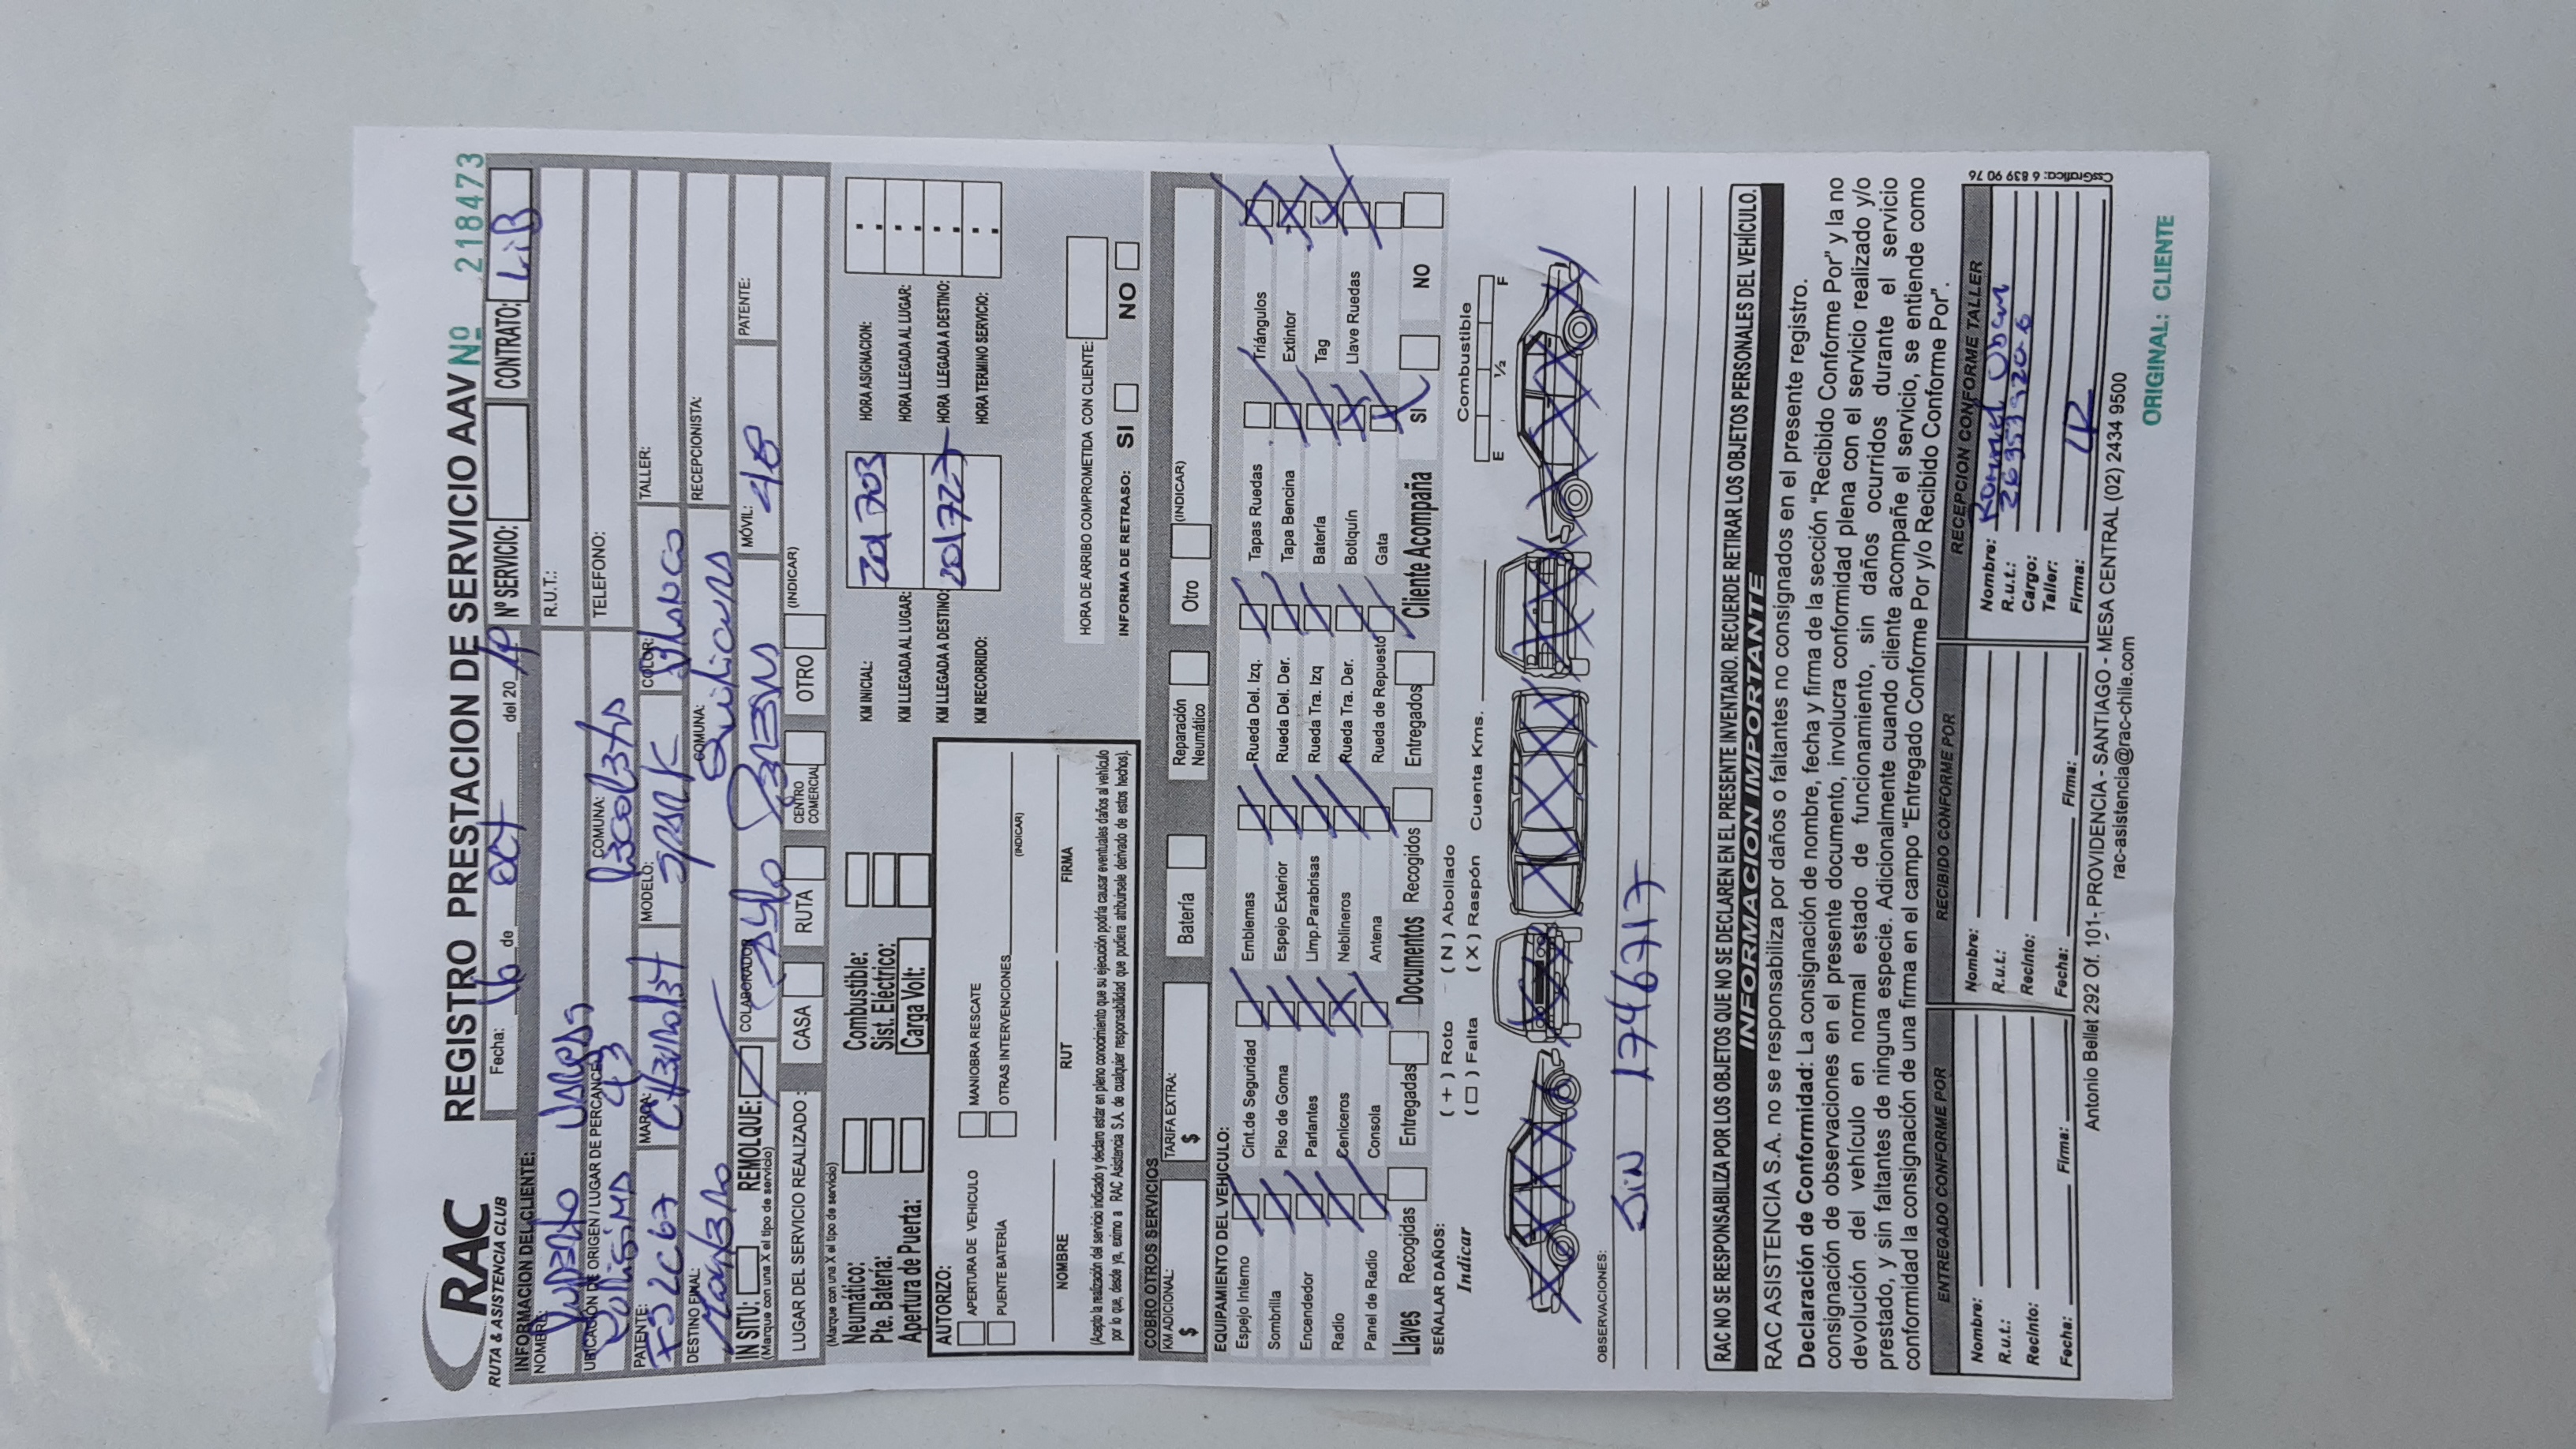 RAC
RUTA & ASISTENCIA CLUB
REGISTRO PRESTACION DE SERVICIO AAV Nº 218473
Fecha: 16 de OCT del 20 19 Nº SERVICIO: CONTRATO: LiB
INFORMACION DEL CLIENTE:
NOMBRE: R.U.T.:
UBICACIÓN DE ORIGEN / LUGAR DE PERCANCE: COMUNA: TELEFONO:
PATENTE: MARCA: MODELO: SPARK COLOR: TALLER:
DESTINO FINAL: COMUNA: Quilicura RECEPCIONISTA:
IN SITU: REMOLQUE: COLABORADOR MÓVIL: 48 PATENTE:
(Marque con una X el tipo de servicio)
LUGAR DEL SERVICIO REALIZADO : CASA RUTA CENTRO COMERCIAL OTRO (INDICAR)
(Marque con una X el tipo de servicio)
Neumático: Combustible:
Pte. Batería: Sist. Eléctrico:
Apertura de Puerta: Carga Volt:
KM INICIAL: 201703 HORA ASIGNACION:
KM LLEGADA AL LUGAR: HORA LLEGADA AL LUGAR:
KM LLEGADA A DESTINO: 201727 HORA LLEGADA A DESTINO:
KM RECORRIDO: HORA TERMINO SERVICIO:
AUTORIZO:
APERTURA DE VEHICULO MANIOBRA RESCATE
PUENTE BATERÍA OTRAS INTERVENCIONES (INDICAR)
NOMBRE RUT FIRMA
(Acepto la realización del servicio indicado y declaro estar en pleno conocimiento que su ejecución podría causar eventuales daños al vehículo
por lo que, desde ya, eximo a RAC Asistencia S.A. de cualquier responsabilidad que pudiera atribuírsele derivado de estos hechos).
HORA DE ARRIBO COMPROMETIDA CON CLIENTE:
INFORMA DE RETRASO: SI NO
COBRO OTROS SERVICIOS
KM ADICIONAL: $ TARIFA EXTRA: $ Batería Reparación Neumático Otro (INDICAR)
EQUIPAMIENTO DEL VEHICULO:
Espejo Interno Cint.de Seguridad Emblemas Rueda Del. Izq. Tapas Ruedas Triángulos
Sombrilla Piso de Goma Espejo Exterior Rueda Del. Der. Tapa Bencina Extintor
Encendedor Parlantes Limp.Parabrisas Rueda Tra. Izq Batería Tag
Radio Ceniceros Neblineros Rueda Tra. Der. Botiquín Llave Ruedas
Panel de Radio Consola Antena Rueda de Repuesto Gata
Llaves Recogidas Entregadas Documentos Recogidos Entregados Cliente Acompaña SI NO
SEÑALAR DAÑOS: ( + ) Roto ( N ) Abollado
Indicar ( □ ) Falta ( X ) Raspón Cuenta Kms. Combustible E ½ F
OBSERVACIONES:
SiN 1746717
RAC NO SE RESPONSABILIZA POR LOS OBJETOS QUE NO SE DECLAREN EN EL PRESENTE INVENTARIO. RECUERDE RETIRAR LOS OBJETOS PERSONALES DEL VEHÍCULO.
INFORMACION IMPORTANTE
RAC ASISTENCIA S.A. no se responsabiliza por daños o faltantes no consignados en el presente registro.
Declaración de Conformidad: La consignación de nombre, fecha y firma de la sección "Recibido Conforme Por" y la no
consignación de observaciones en el presente documento, involucra conformidad plena con el servicio realizado y/o
devolución del vehículo en normal estado de funcionamiento, sin daños ocurridos durante el servicio
prestado, y sin faltantes de ninguna especie. Adicionalmente cuando cliente acompañe el servicio, se entiende como
conformidad la consignación de una firma en el campo "Entregado Conforme Por y/o Recibido Conforme Por".
ENTREGADO CONFORME POR RECIBIDO CONFORME POR RECEPCION CONFORME TALLER
Nombre: Nombre: Nombre:
R.u.t.: R.u.t.: R.u.t.: 26353920-6
Recinto: Recinto: Cargo:
Taller:
Fecha: Firma: Fecha: Firma: Firma:
CssGrafica: 6 839 90 76
Antonio Bellet 292 Of. 101- PROVIDENCIA - SANTIAGO - MESA CENTRAL (02) 2434 9500
rac-asistencia@rac-chile.com
ORIGINAL: CLIENTE